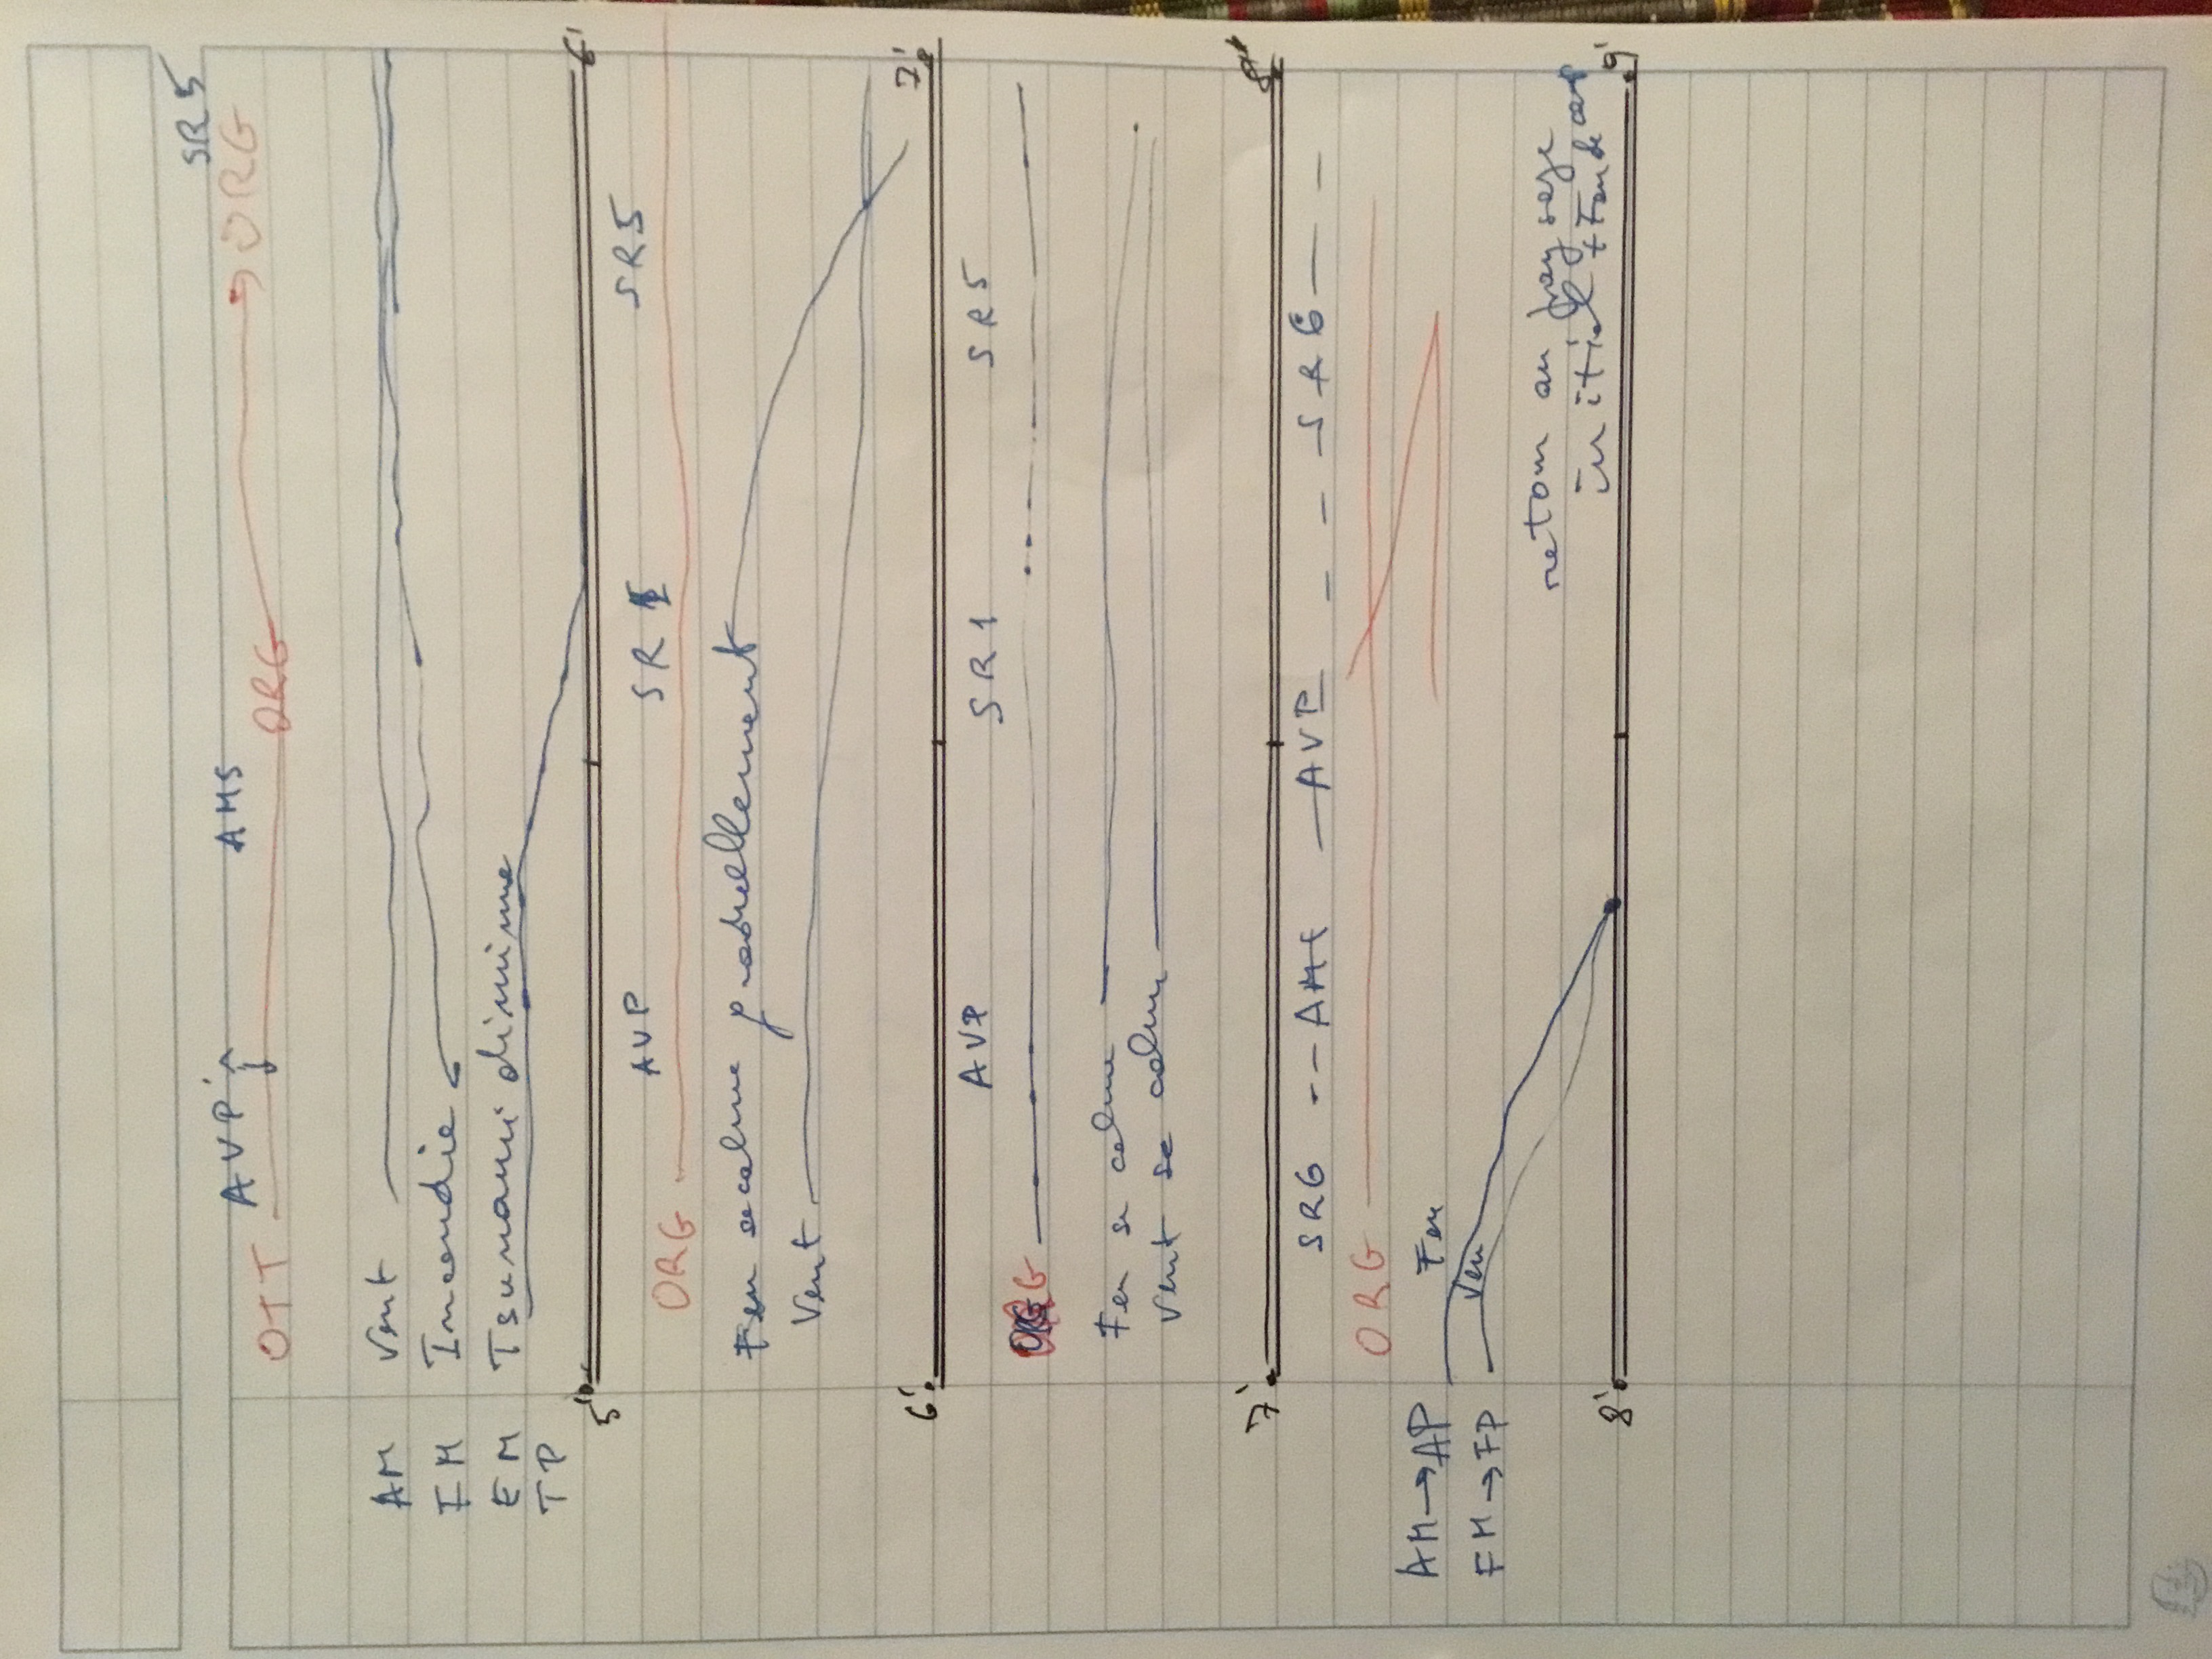 SR5
AVP AMS
OTT ORG ORG
AM Vent
FM Incendie
EM Tsunami diminue
TP
5' 6'
AVP SR1 SR5
ORG
Feu se calme graduellement
Vent
6' 7'
AVP SR1 SR5
ORG
Feu se calme
Vent se calme
7' 8'
SR6 -- AMS — AVP — — SR6 — —
ORG
AM→AP Feu
FM→FP Ven
retour au paysage
initial + Feu de camp
8' 9'